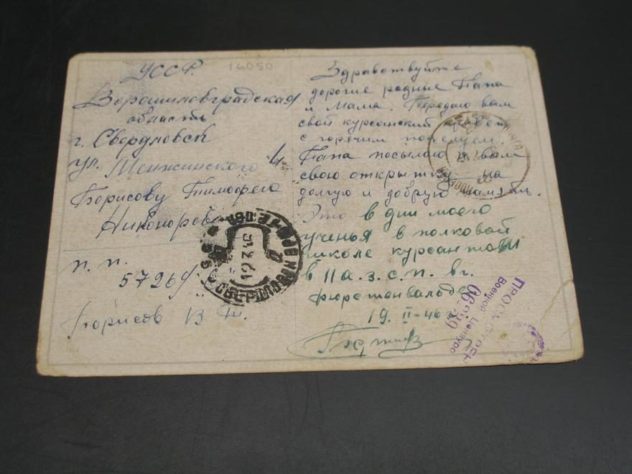 УССР.
16050
Ворошиловградская
область
г. Свердловск
ул. Менжинского 4
Борисову Тимофею
Никоноров
п. п.
57269
Борисов В. Т.
Здравствуйте
дорогие родные Папа
и Мама. Передаю вам
свой курсантский привет
с горячим поцелуем.
Папа посылаю я вам
свою открытку на
долгую и добрую память.
Это в дни моего
ученья в полковой
школе курсантом
в 11 а.з.с.п. в г.
Фюрстенвальде
19 II-46
ПРОСМОТРЕНО
Военной Цензурой
06039